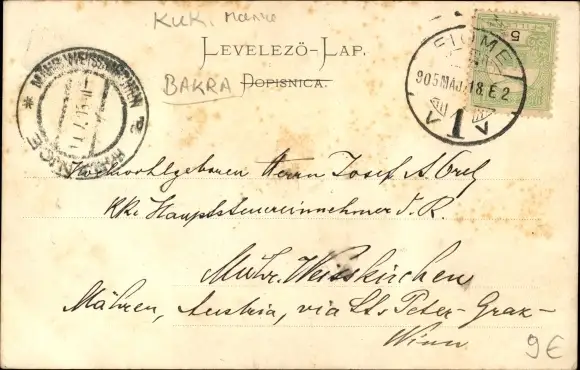 KUK.
LEVELEZÖ-LAP.
BAKRA DOPISNICA.
FIUME
905 MÁJ. 18. E 2
1
5
MÄHR. WEISSKIRCHEN 2
Hochwohlgeboren Herrn Josef A. Orel
kk. Hauptsteuereinnehmer d. R.
Mähr. Weisskirchen
Mähren, Austria, via St. Peter-Graz-
Wien
9€